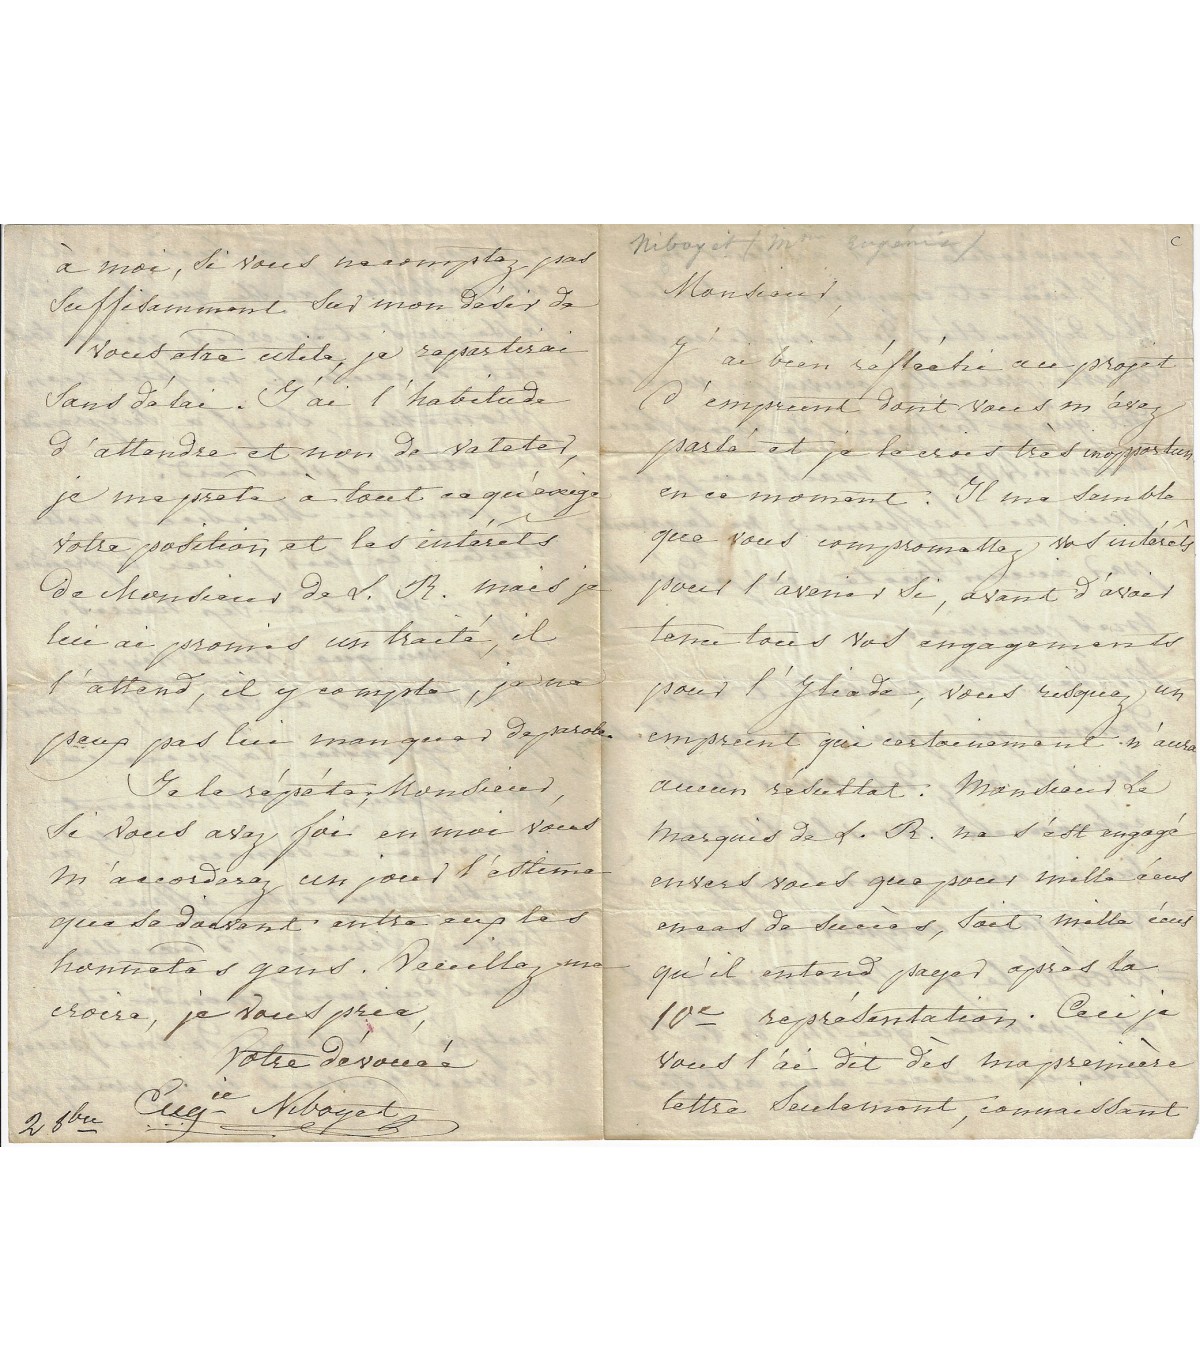 Niboyet (Mme Eugénie)
C
Monsieur,
J'ai bien réfléchi au projet
d'emprunt dont vous m'avez
parlé et je le crois très inopportun
en ce moment. Il me semble
que vous compromettez vos intérêts
pour l'avenir si, avant d'avoir
tenu tous vos engagements
pour l'Yliade, vous risquez un
emprunt qui certainement n'aura
aucun résultat. Monsieur le
Marquis de L. R. ne s'est engagé
envers vous que pour mille écus
en cas de succès, soit mille écus
qu'il entend payer après la
10e représentation. Ceci je
vous l'ai dit dès ma première
lettre seulement, connaissant
à moi, si vous ne comptez pas
suffisamment sur mon désir de
vous etre utile, je repartirai
sans délai. J'ai l'habitude
d'attendre et non de
je me prête à tout ce qu'exige
votre position et les intérêts
de Monsieur de L. R. mais je
lui ai promis un traité, il
l'attend, il y compte, je ne
peux pas lui manquer de parole.
Je le répéte, Monsieur,
si vous avez foi en moi vous
m'accorderez un jour l'estime
que se doivent entre eux les
honnêtes gens. Veuillez me
croire, je vous prie,
Votre dévouée
Eugie Niboyet
2 8bre